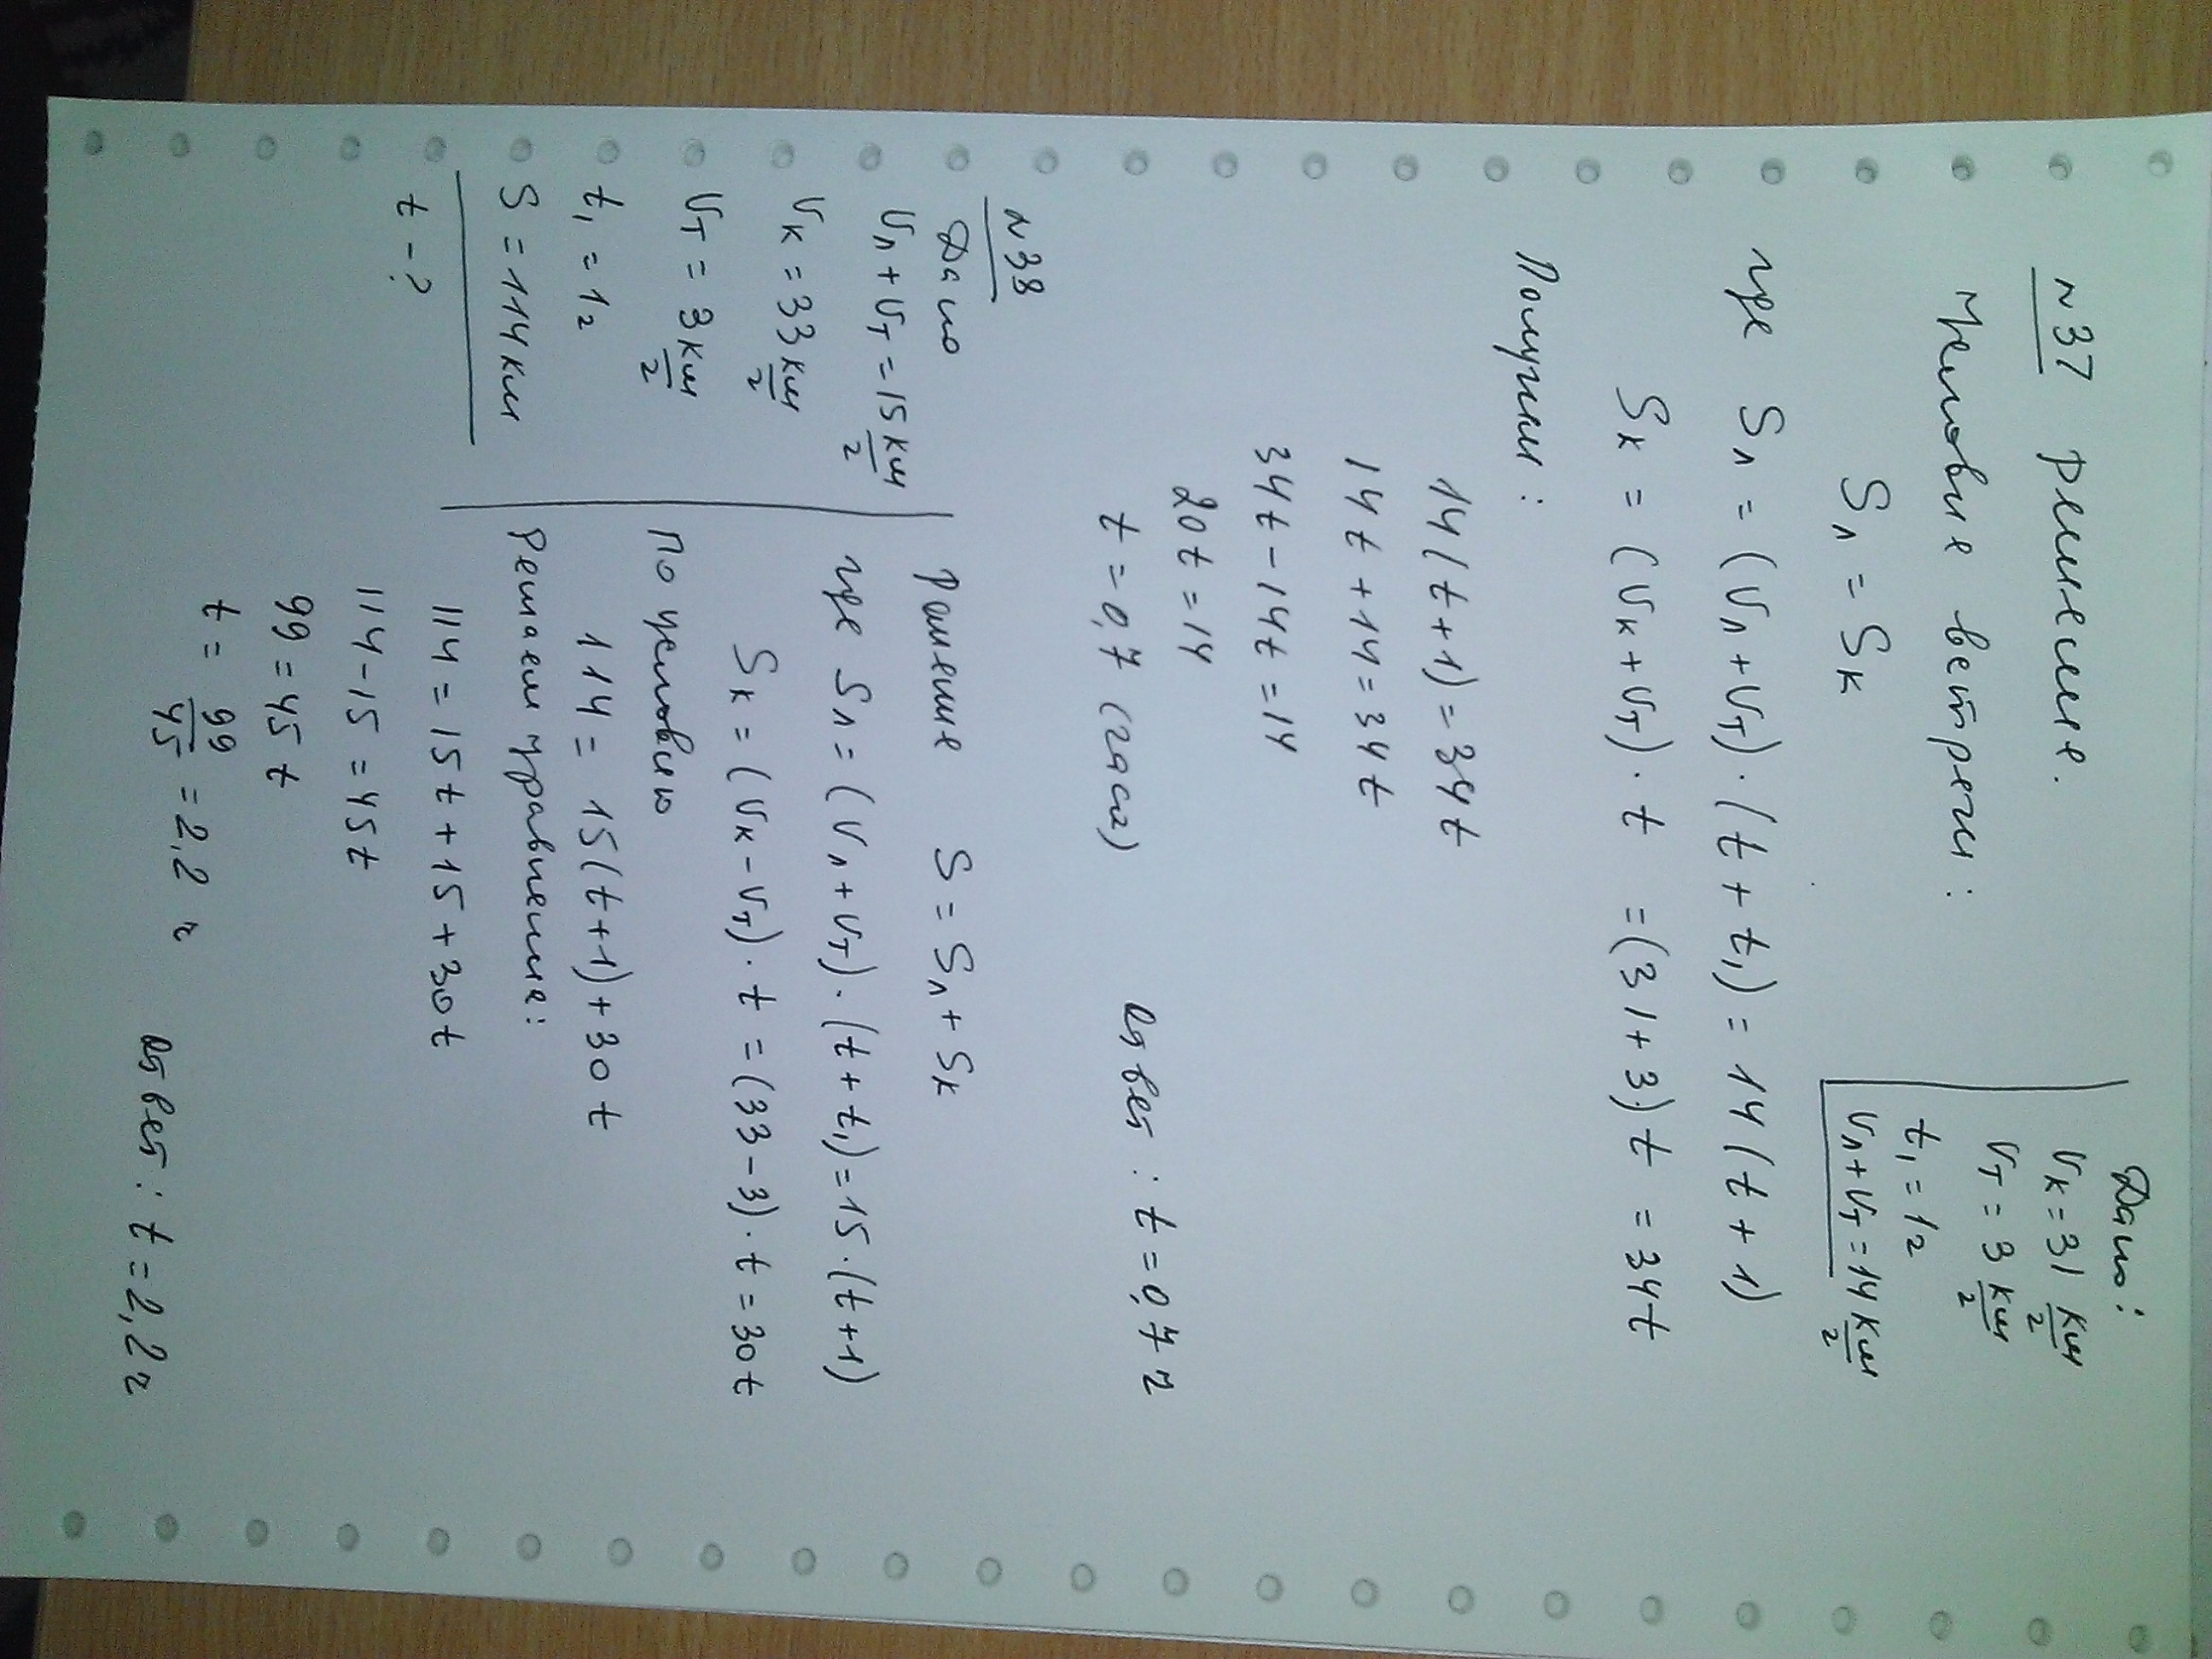 N37 Решение.
Дано:
Vк = 31 км/ч
Vт = 3 км/ч
t₁ = 1ч
Vл + Vт = 14 км/ч
Условие встречи:
Sл = Sк
где Sл = (Vл + Vт) · (t + t₁) = 14 (t + 1)
Sк = (Vк + Vт) · t = (31 + 3) t = 34t
Получим:
14 (t + 1) = 34t
14t + 14 = 34t
34t - 14t = 14
20t = 14
t = 0,7 (часа)
Ответ: t = 0,7 ч
N38
Дано
Vл + Vт = 15 км/ч
Vк = 33 км/ч
Vт = 3 км/ч
t₁ = 1ч
S = 114 км
t - ?
Решение S = Sл + Sк
где Sл = (Vл + Vт) · (t + t₁) = 15 · (t + 1)
Sк = (Vк - Vт) · t = (33 - 3) · t = 30t
По условию
114 = 15 (t + 1) + 30t
Решаем уравнение:
114 = 15t + 15 + 30t
114 - 15 = 45t
99 = 45t
t = 99/45 = 2,2 ч
Ответ: t = 2,2 ч